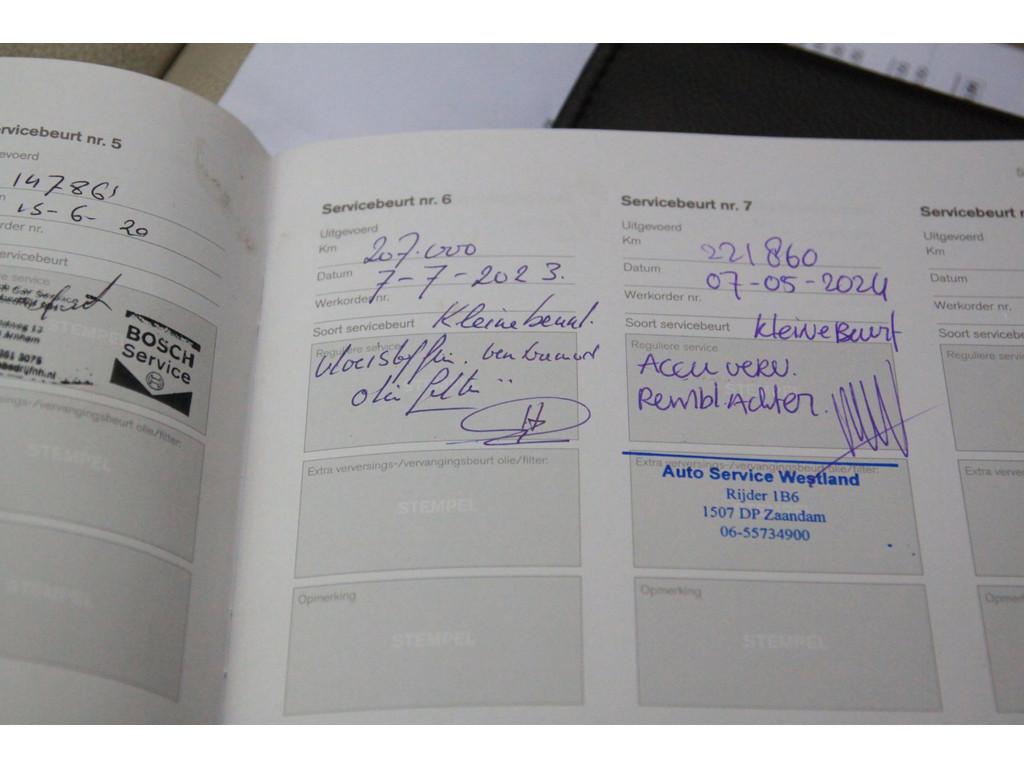 rvicebeurt nr. 5
evoerd
147861
15-6-20
order nr.
servicebeurt
BOSCH
Service
STEMPEL
Servicebeurt nr. 6
Uitgevoerd
Km 207.000
Datum 7-7-2023.
Werkorder nr.
Soort servicebeurt Kleine beurt.
Reguliere service
olie filter
H
Extra verversings-/vervangingsbeurt olie/filter:
STEMPEL
Opmerking
STEMPEL
Servicebeurt nr. 7
Uitgevoerd
Km 221860
Datum 07-05-2024
Werkorder nr.
Soort servicebeurt kleine Beurt
Reguliere service
Accu verv.
Rembl. Achter.
Extra verversings-/vervangingsbeurt olie/filter:
Auto Service Westland
Rijder 1B6
1507 DP Zaandam
06-55734900
Opmerking
STEMPEL
Servicebeurt n
Uitgevoerd
Km
Datum
Werkorder nr.
Soort servicebeurt
Reguliere servic
Extra verver
Opmer